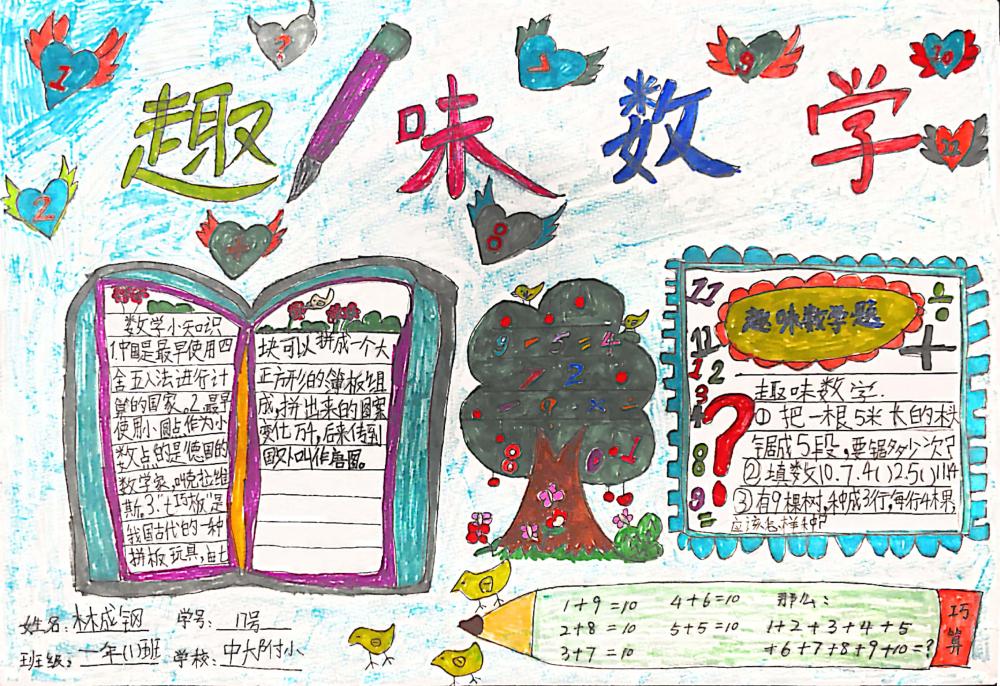 趣味数学
1
?
7
9
10
11
2
+
8
数学小知识
1.中国是最早使用四
舍五入法进行计
算的国家。2.最早
使用小圆点作为小
数点的是德国的
数学家,叫克拉维
斯。3.“七巧板”是
我国古代的一种
拼板玩具,由七
块可以拼成一个大
正方形的薄板组
成,拼出来的图案
变化万千,后来传到
国外叫作唐图。
9-5=4
2
- 9 × ÷
8 0 1
趣味数学题
÷
+
11
1
2
3
?
8
9
=
趣味数学.
① 把一根5米长的木头
锯成5段,要锯多少次?
②填数10.7.4()2.5()1114
③有9棵树,种成3行,每行4棵,
应该怎样种?
姓名:林成钢 学号:17号
班级:一年(1)班 学校:中大附小
1+9=10 4+6=10 那么:
2+8=10 5+5=10 1+2+3+4+5
3+7=10 +6+7+8+9+10=?
巧算